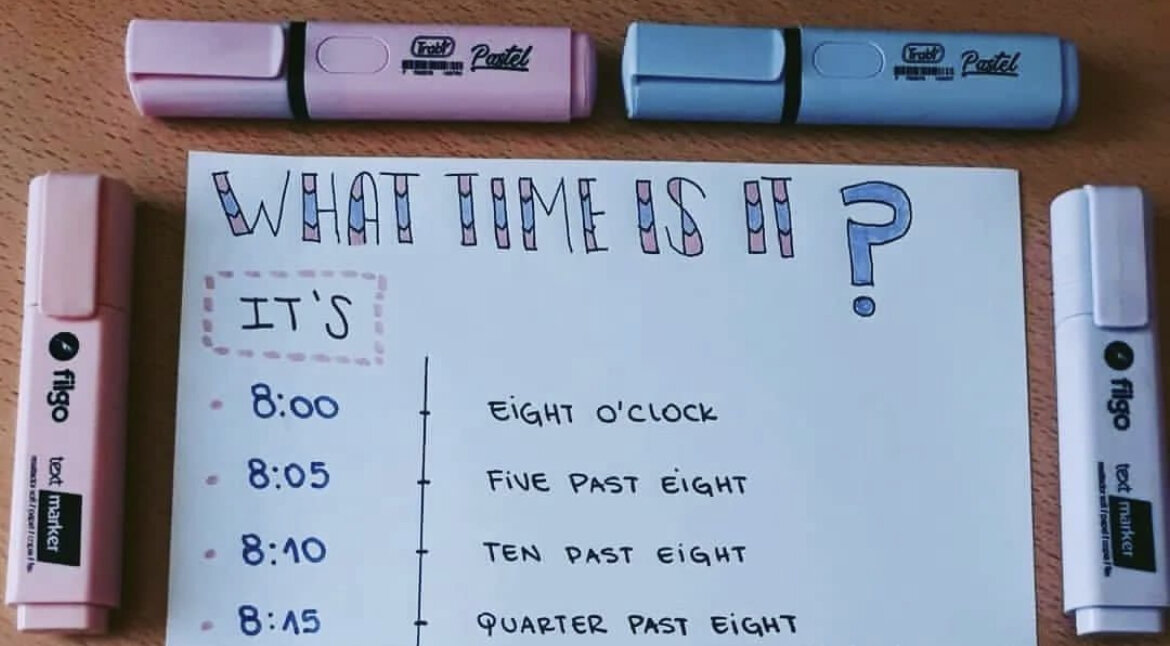 Trabi Pastel
Trabi Pastel
WHAT TIME IS IT ?
IT'S
8:00 EiGHT O'CLOCK
8:05 FiVE PAST EiGHT
8:10 TEN PAST EiGHT
8:15 QUARTER PAST EiGHT
filgo
text marker
filgo
text marker